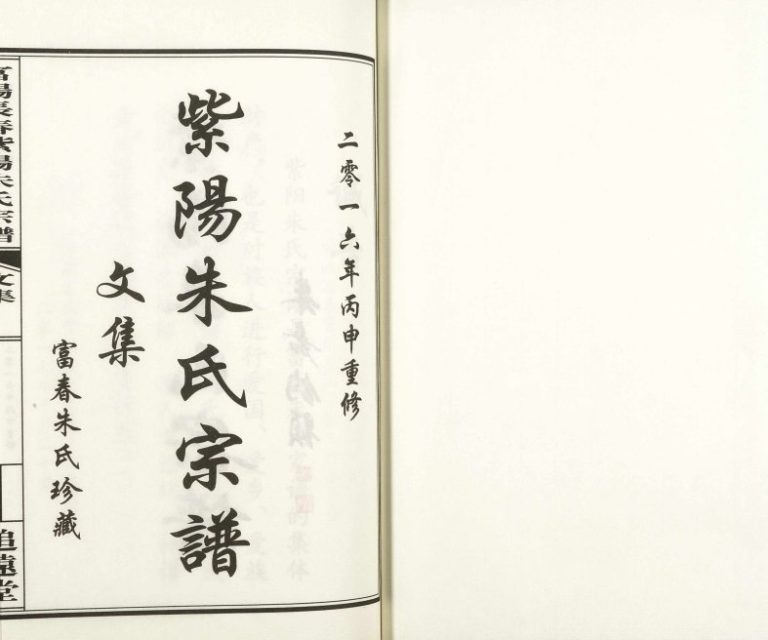 二零一六年丙申重修
紫陽朱氏宗譜
文集
富春朱氏珍藏
富陽長春紫陽朱氏宗譜
文集
追遠堂